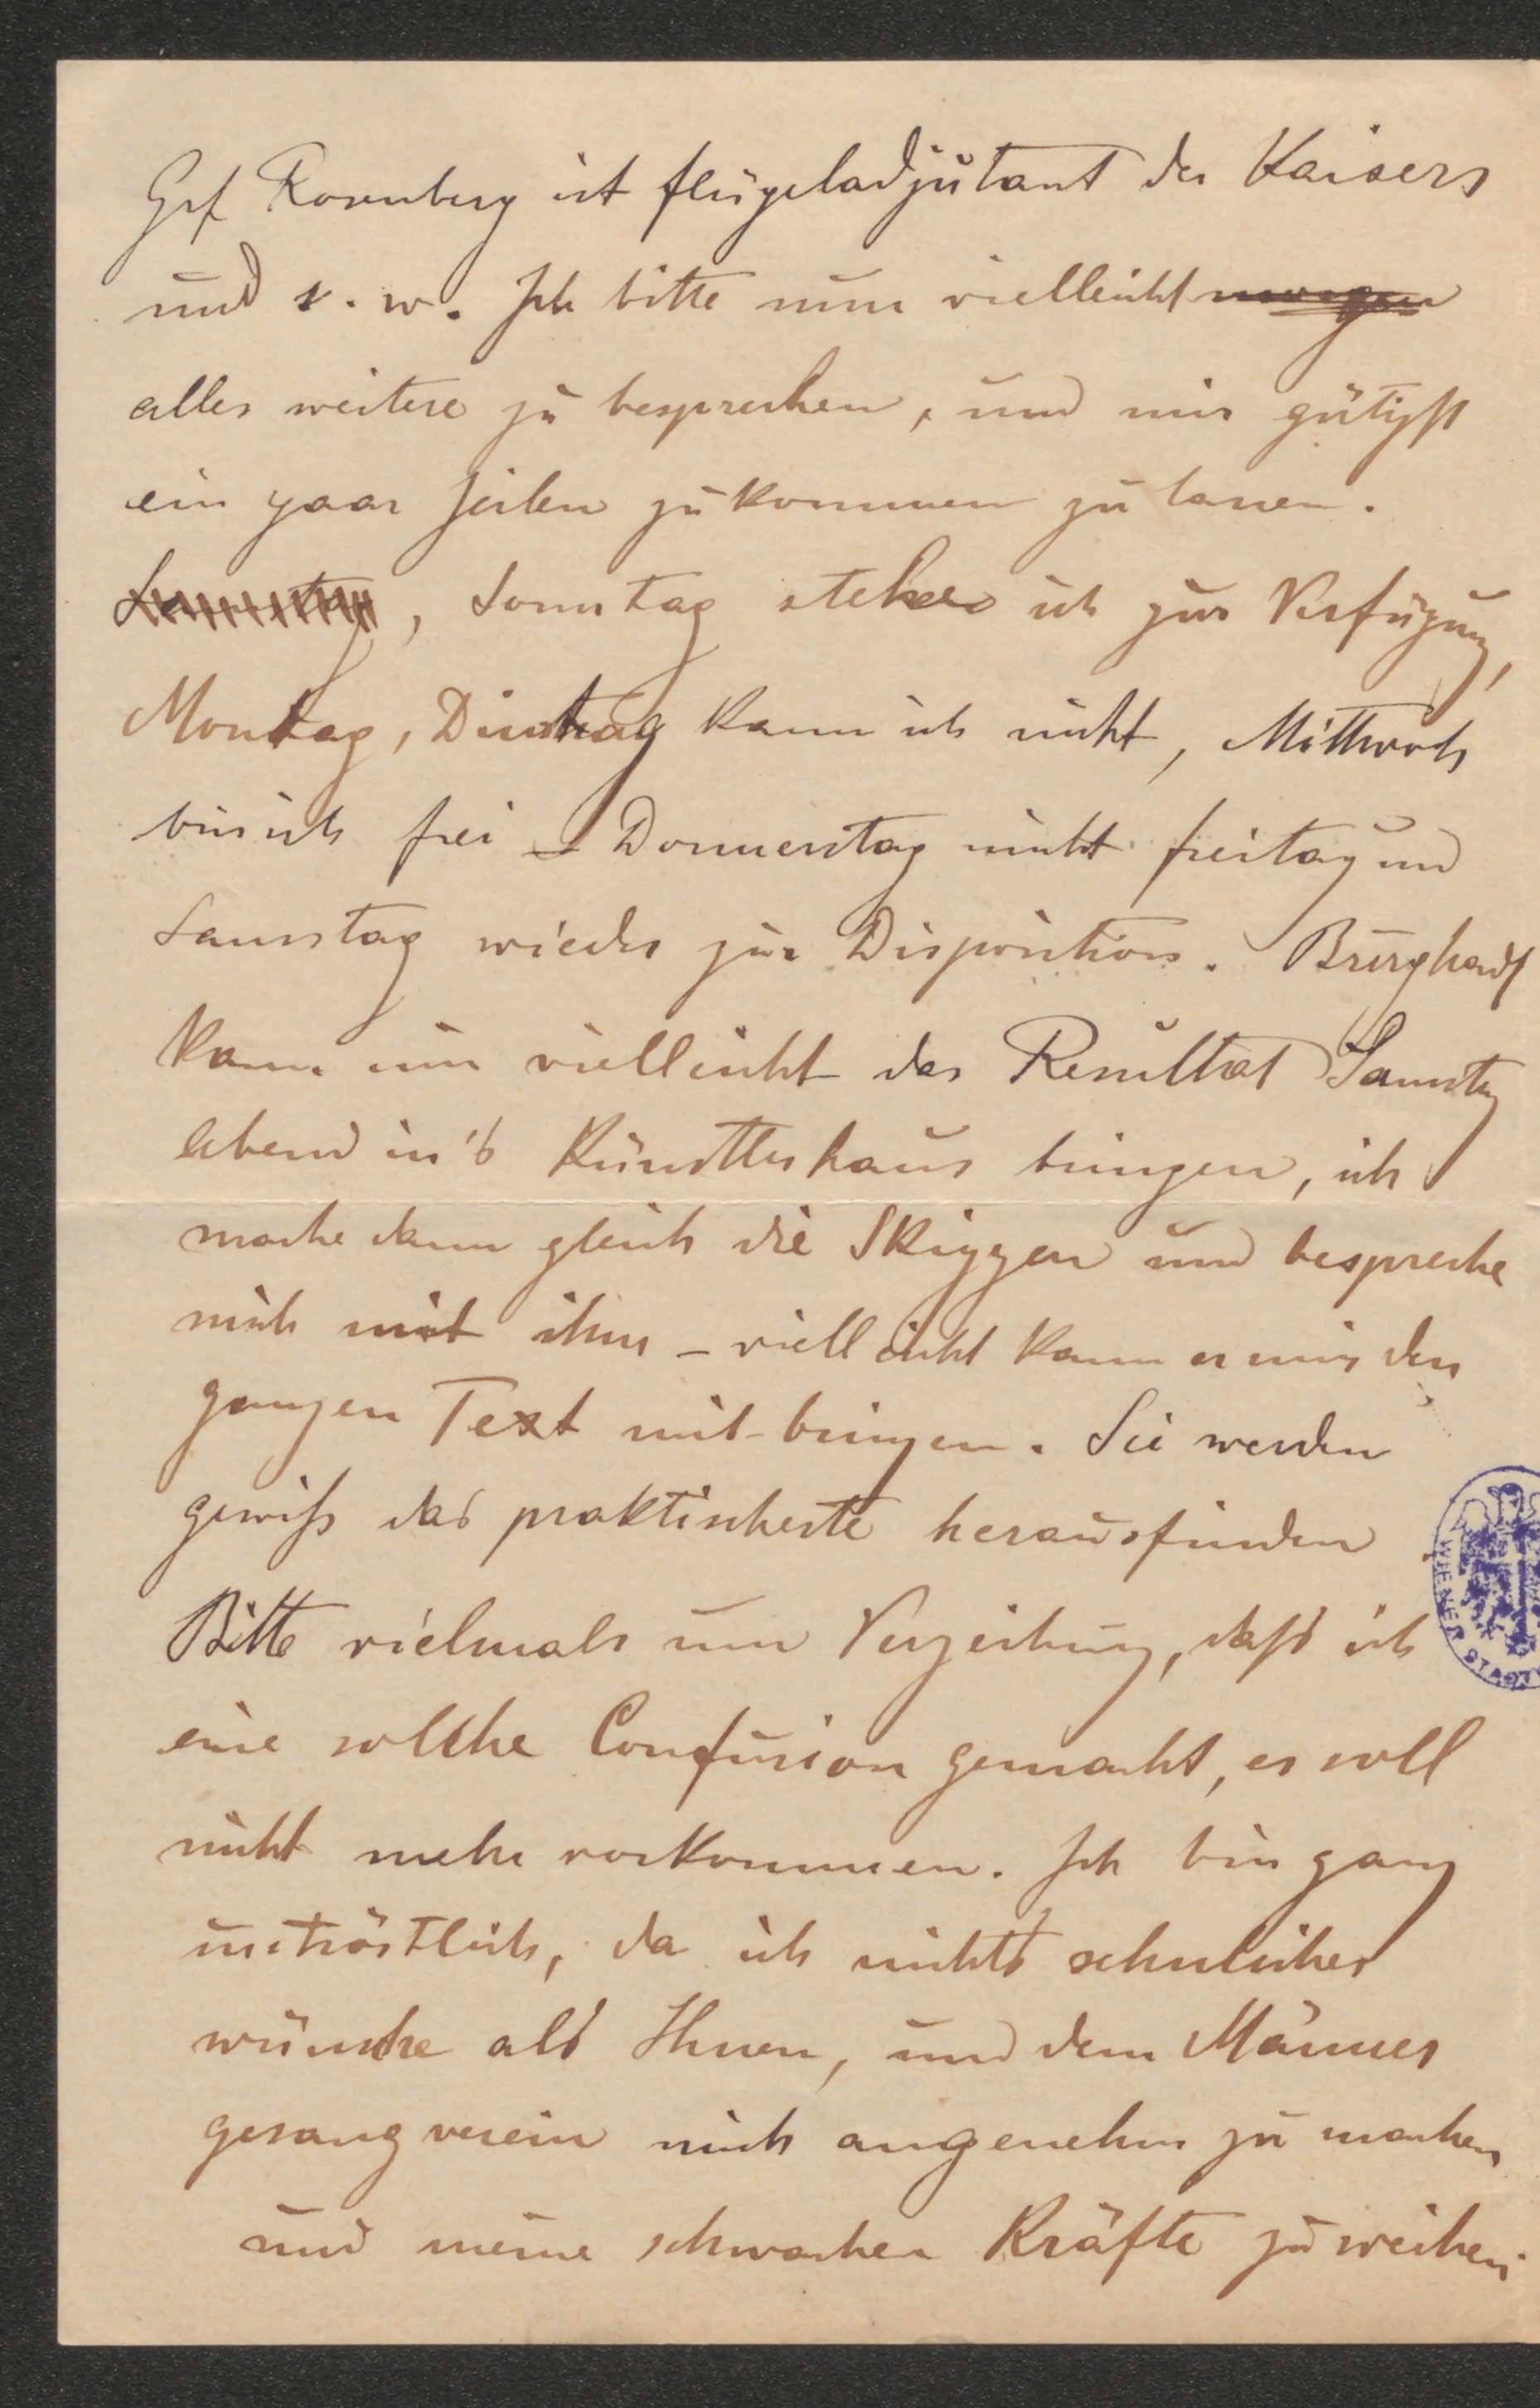 Grf Rosenberg ist flügeladjutant des Kaisers
und s. w. Ich bitte nun vielleicht morgen
alles weitere zu besprechen, und mir gütigst
ein paar Zeilen zukommen zu lassen.
Samstag, Sonntag stehe ich zur Verfügung,
Montag, Dinstag kann ich nicht, Mittwoch
bin ich frei – Donnerstag nicht freitag und
Samstag wieder zur Disposition. Burghard
kann mir vielleicht das Resultat Samstg
abend in's Künstlerhaus bringen, ich
mache dann gleich die Skizzen und bespreche
mich mit ihm – vielleicht kann er mir den
ganzen Text mit-bringen. Sie werden
gewiß das praktischeste herausfinden
Bitte vielmals um Verzeihung, daß ich
eine solche Confusion gemacht, es soll
nicht mehr vorkommen. Ich bin ganz
untröstlich, da ich nichts sehnlicher
wünsche als Ihnen, und dem Männer
gesangverein mich angenehm zu machen
und meine schwachen Kräfte zu weihen.
WIENER STADT